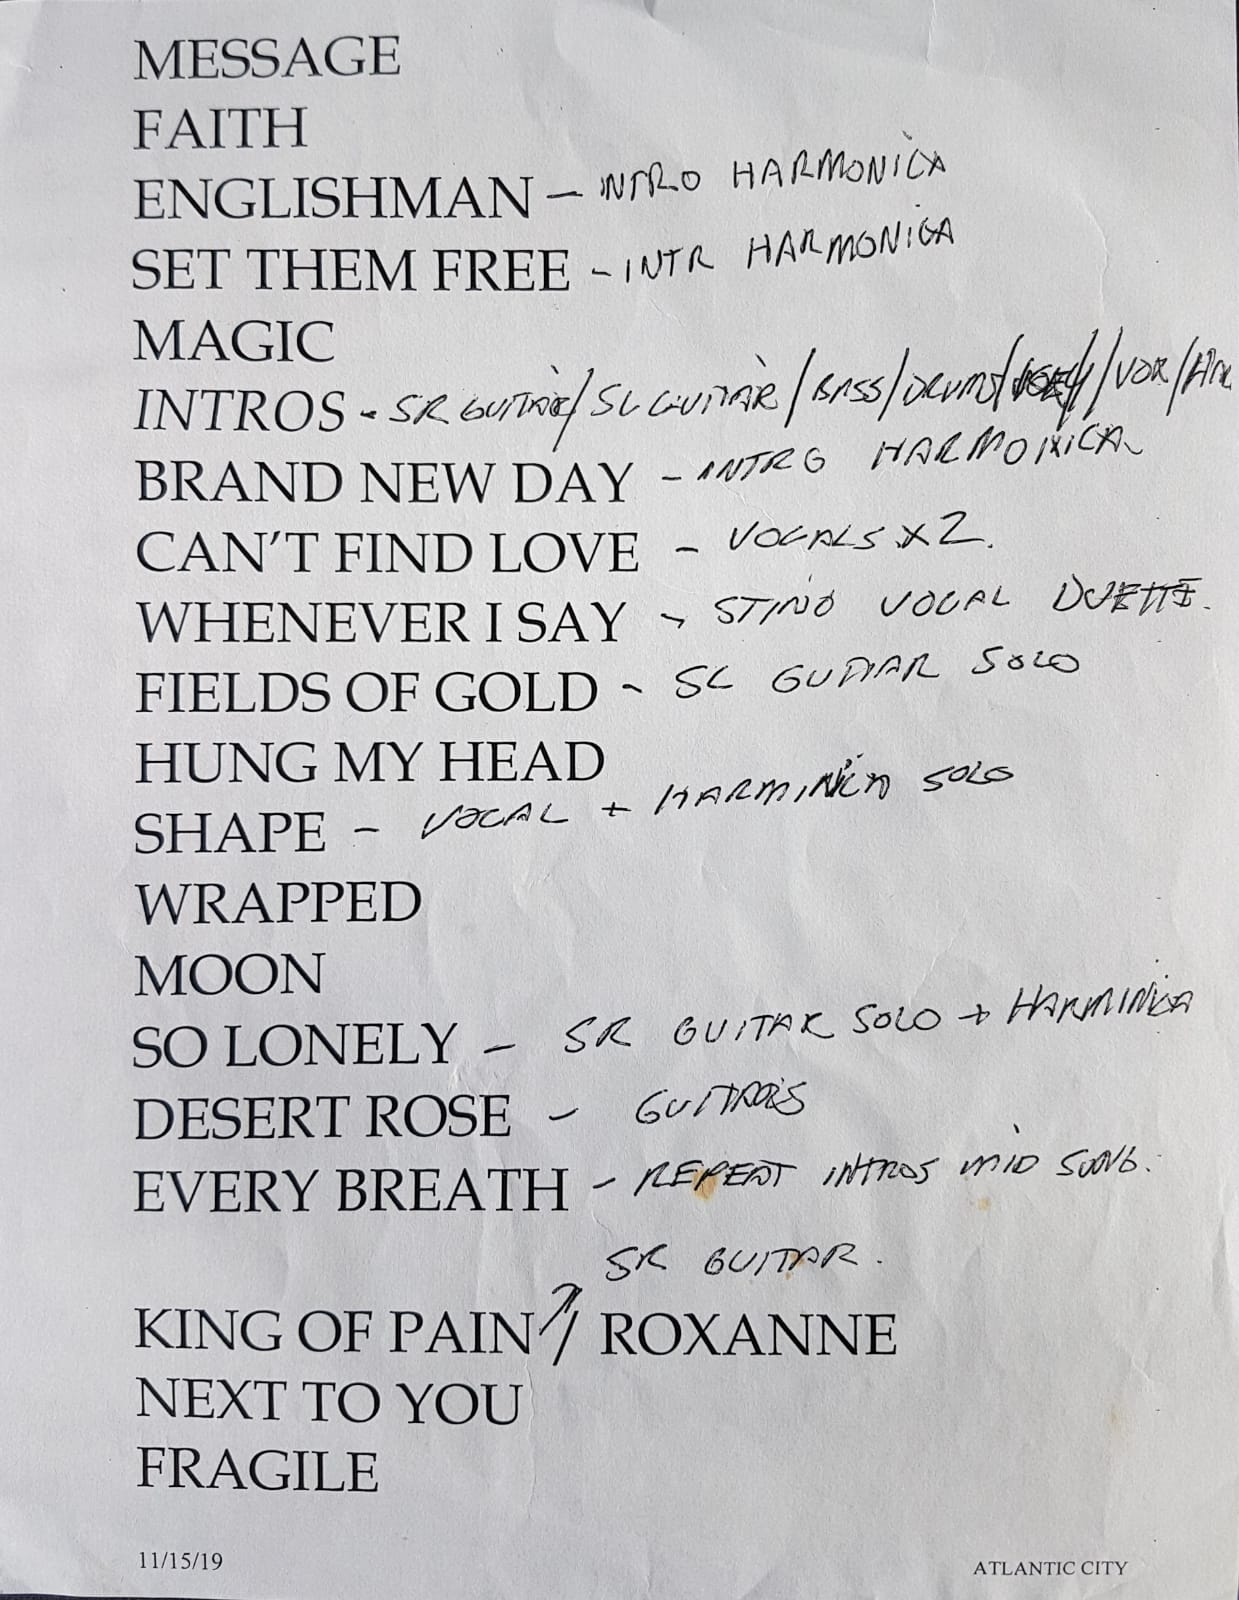 MESSAGE
FAITH
ENGLISHMAN - INTRO HARMONICA
SET THEM FREE - INTR HARMONICA
MAGIC
INTROS - SR GUITAR/SL GUITAR/BASS/DRUMS/ /VOX/
BRAND NEW DAY - INTRO HARMONICA
CAN'T FIND LOVE - VOCALS X2.
WHENEVER I SAY - STING VOCAL
FIELDS OF GOLD - SL GUITAR SOLO
HUNG MY HEAD
SHAPE - VOCAL + HARMINICA SOLO
WRAPPED
MOON
SO LONELY - SR GUITAR SOLO + HARMINICA
DESERT ROSE - GUITARS
EVERY BREATH - REPEAT INTROS MID SONG.
SR GUITAR.
KING OF PAIN / ROXANNE
NEXT TO YOU
FRAGILE
11/15/19 ATLANTIC CITY